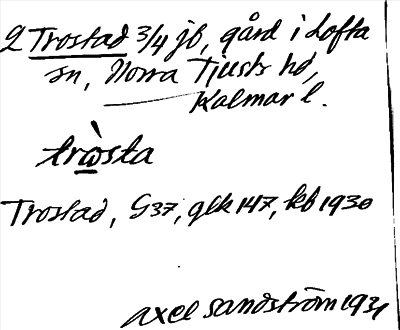 2 Trostad 3/4 jb, gård i Lofta
sn, Norra Tjusts hd,
Kalmar l.
tròsta
Trostad, G37, glk 147, kb 1930
Axel Sandström 1931